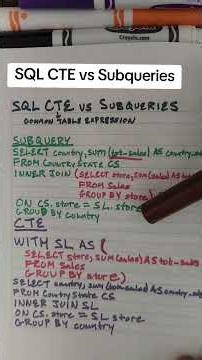 Crayola
SQL CTE vs Subqueries
SQL CTE vs SUBQUERIES
COMMON TABLE EXPRESSION
SUBQUERY
SELECT country, SUM (tot-sales) AS country-
FROM CountryState CS
INNER JOIN (SELECT store, sum(sales) AS tot-
FROM Sales
GROUP BY store)
ON CS. store = SL. store
GROUP BY country
CTE
WITH SL AS (
SELECT store, SUM (sales) AS tot-sales
FROM Sales
GROUP BY store)
SELECT country, sum (tot-sales) AS country-
FROM Country State CS
INNER JOIN SL
ON CS. store = SL store
GROUP BY country